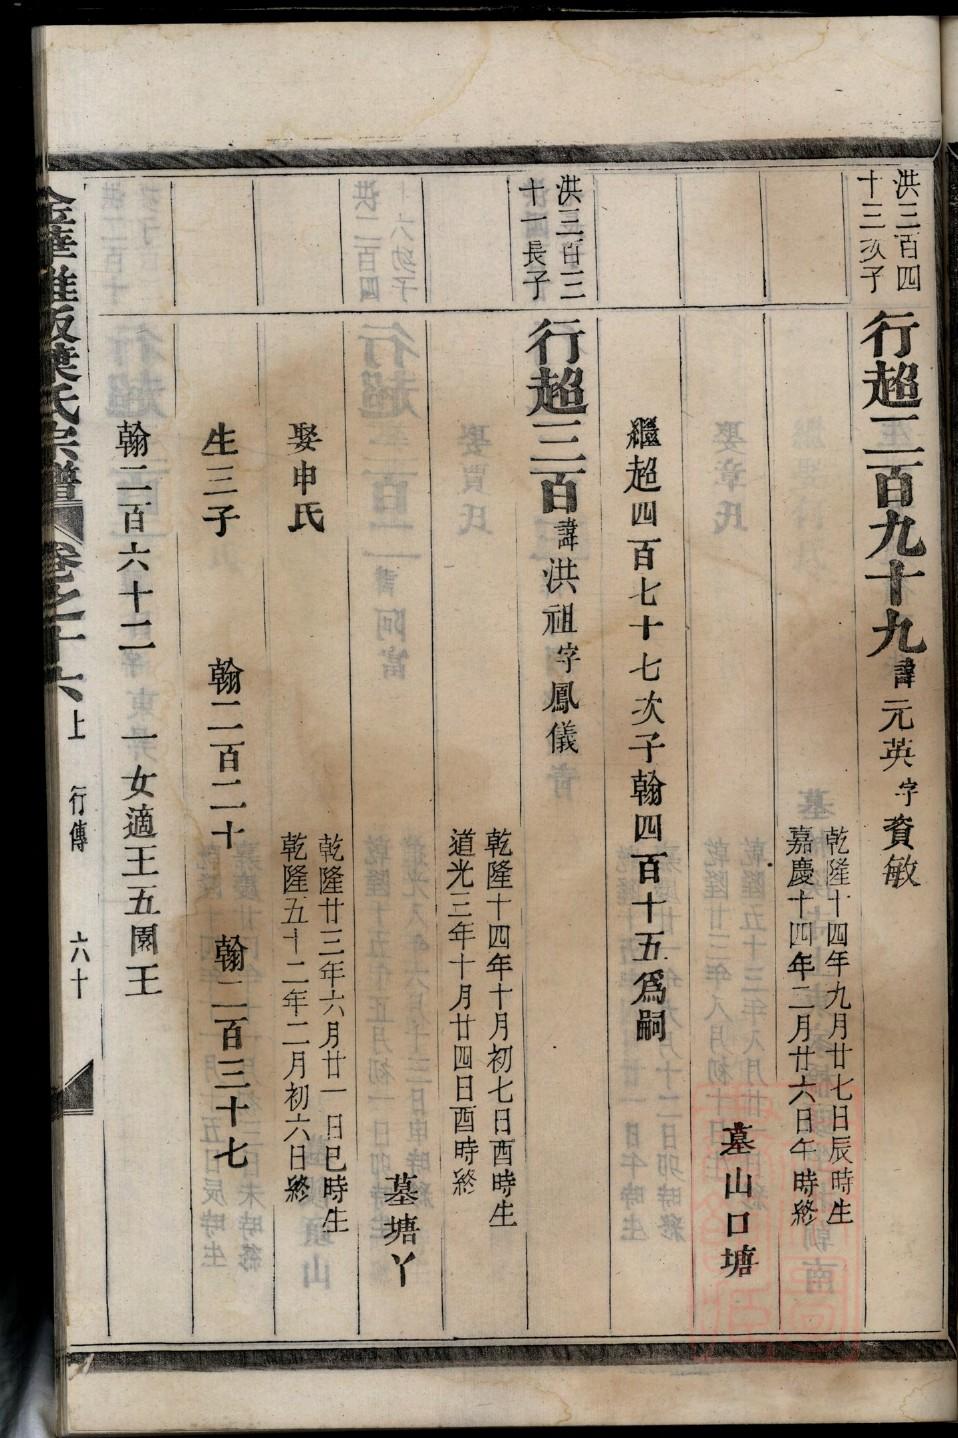 洪三百四
十三次子
行超二百九十九諱元英字資敏
乾隆十四年九月廿七日辰時生
嘉慶十四年二月廿六日午時終
墓山口塘
繼超四百七十七次子翰四百十五爲嗣
洪三百三
十一長子
行超三百諱洪祖字鳳儀
乾隆十四年十月初七日酉時生
道光三年十月廿四日酉時終
墓塘丫
娶申氏
乾隆廿三年六月廿一日巳時生
乾隆五十二年二月初六日終
生三子 翰二百二十 翰二百三十七
翰二百六十二 一女適王五園王
氏宗譜 卷之十六上 行傳 六十